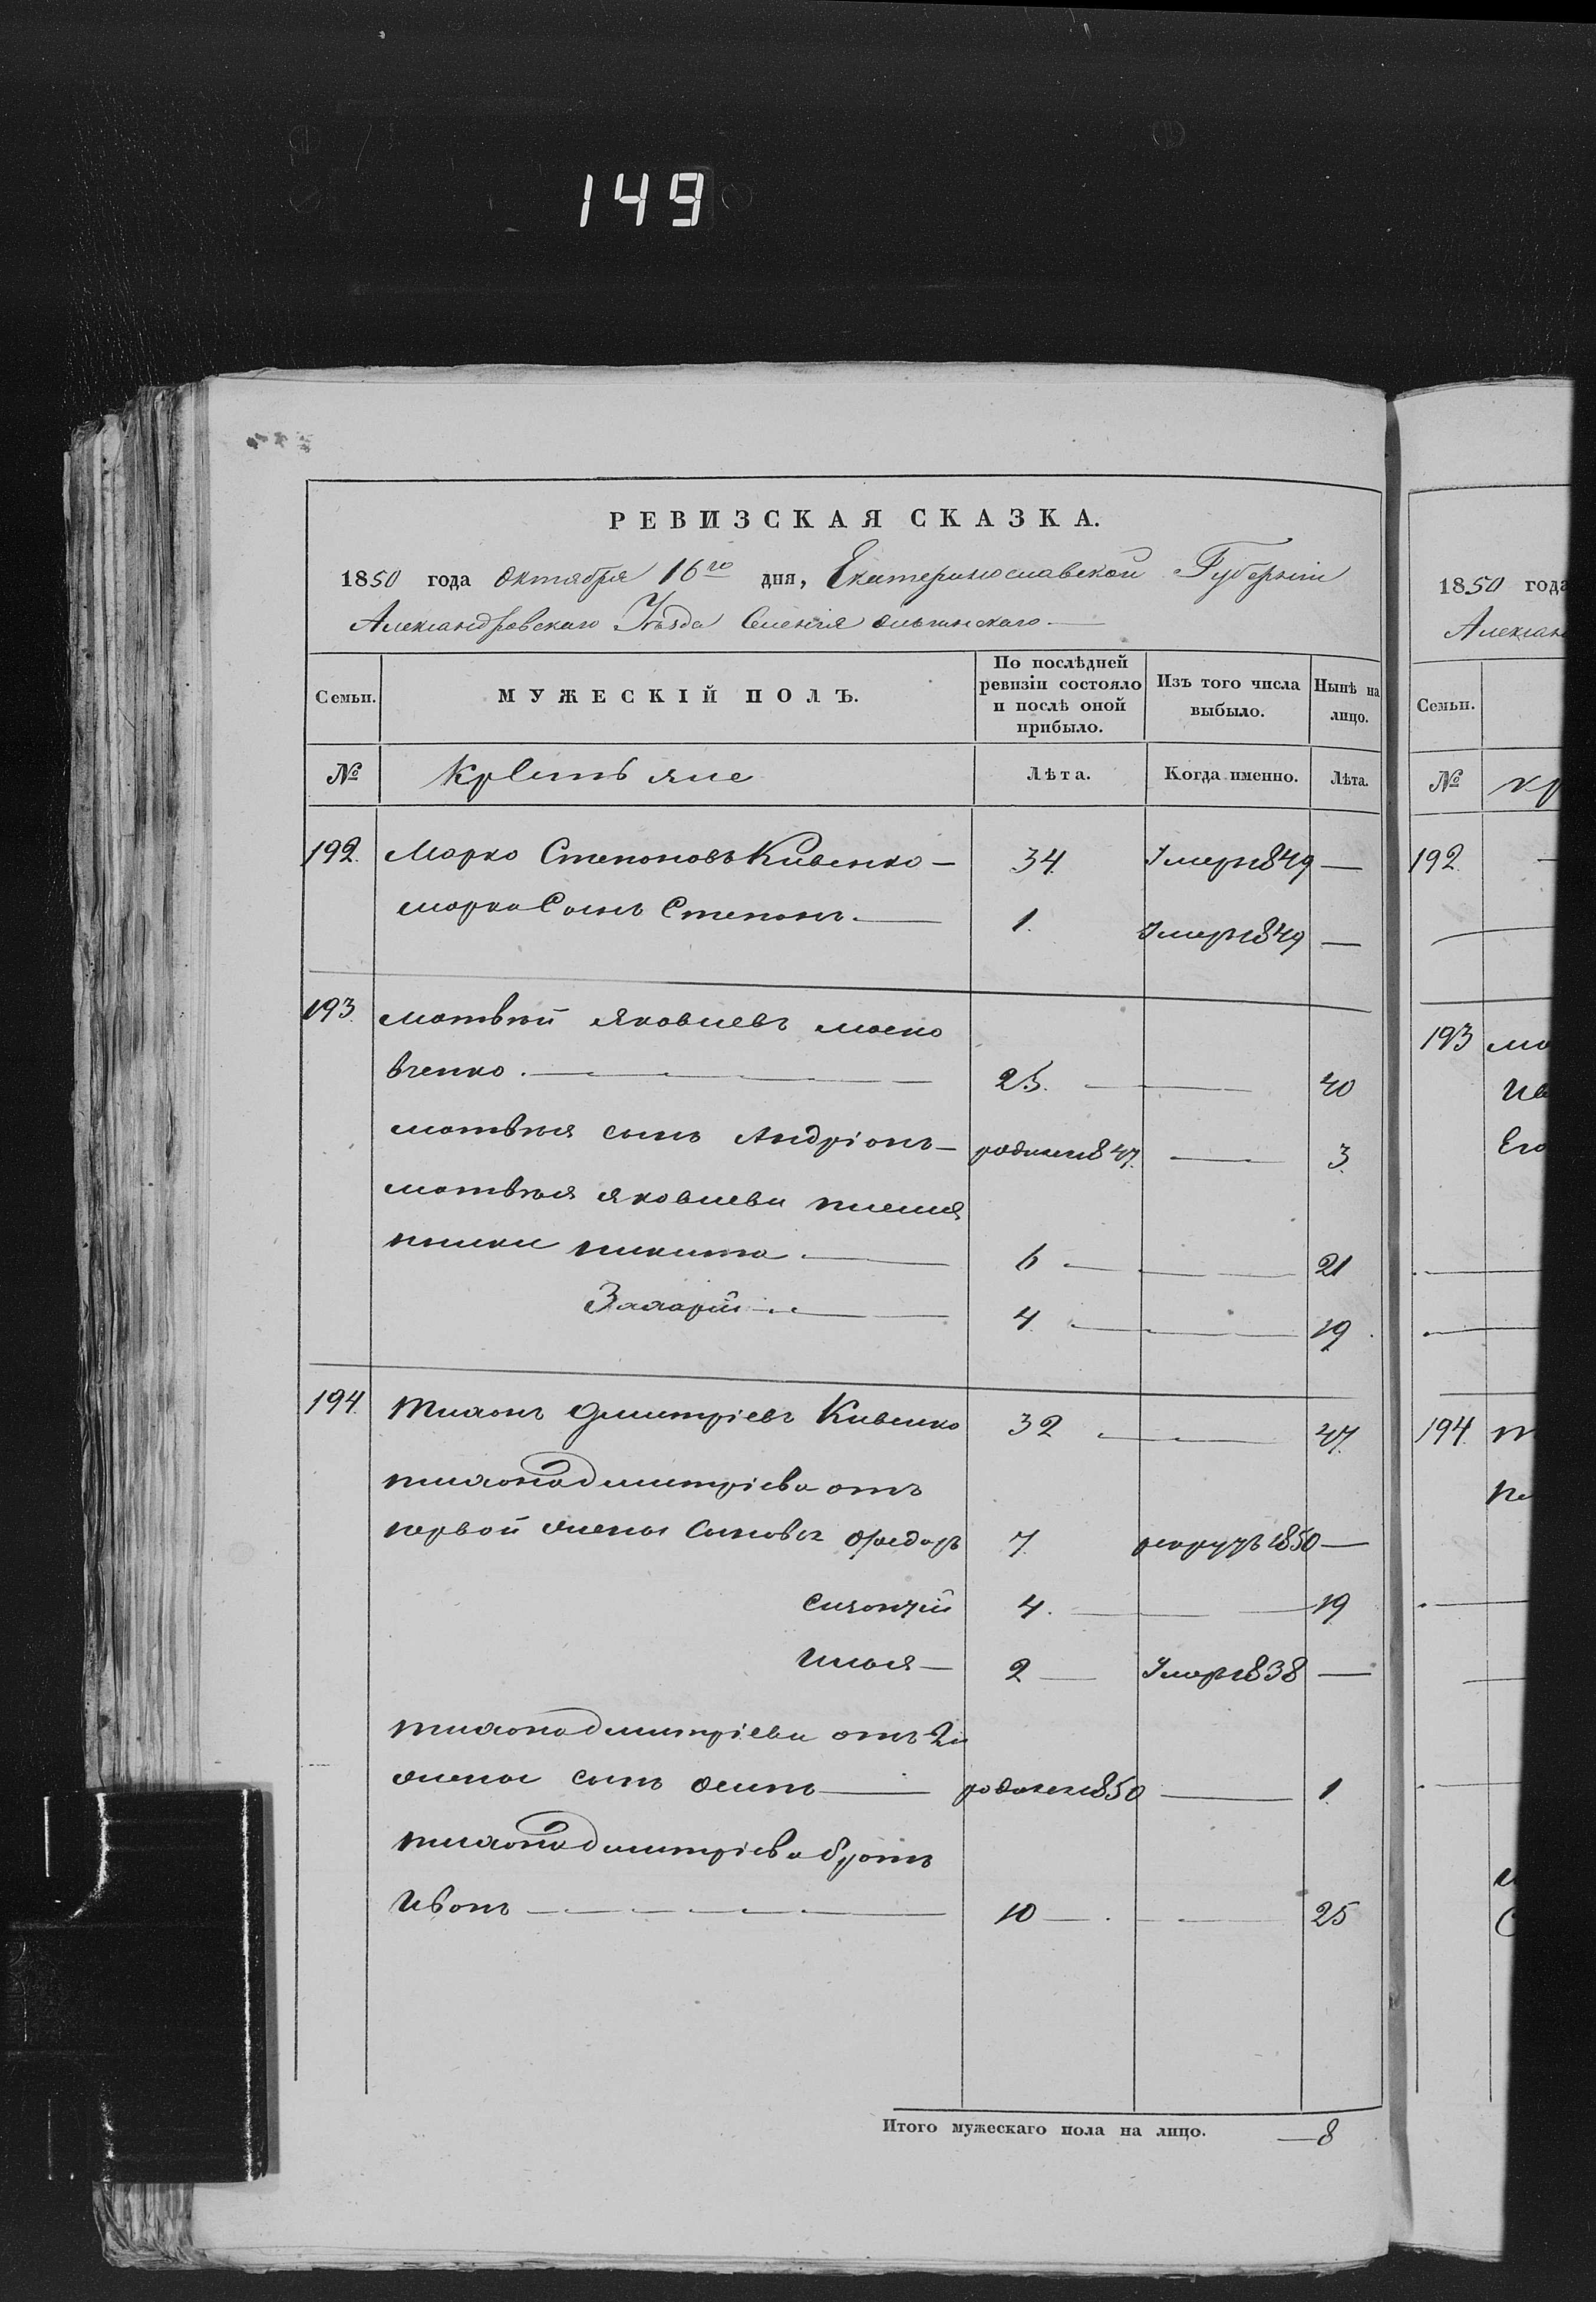 149
РЕВИЗСКАЯ СКАЗКА.
1850 года Октября 16го дня, Екатеринославской Губерніи
Александровскаго Уѣзда Селенія Ольгинскаго —
Семьи. МУЖЕСКІЙ ПОЛЪ. По послѣдней ревизіи состояло и послѣ оной прибыло. Изъ того числа выбыло. Нынѣ на лицо.
№ Крестьяне Лѣта. Когда именно. Лѣта.
192. Марко Степановъ Кивенко — 34 Умеръ 1849 —
Марка Сынъ Степанъ — 1. Умеръ 1849 —
193. Матвѣй Яковлевъ Моско
вченко. — 25. — 40
Матвѣя сынъ Андріанъ — родился 1847. — 3.
Матвѣя Яковлева племя
нники Никита — 6 — 21
Захарій — 4 — 19
194. Тихонъ Дмитріевъ Кивенко 32 — 47.
Тихона Дмитріева отъ
первой жены Сыновья Федоръ 7. рекрутъ 1850 —
4. — 19
Илья — 2 — Умеръ 1838 —
Тихона Дмитріева отъ 2й
жены сынъ Осипъ — родился 1850 — 1.
Тихона Дмитріева братъ
Иванъ — 10 — 25
Итого мужескаго пола на лицо. — 8
1850 года
Алексан
Семьи.
№ кр
192. —
193 Ма
Его
194. Т